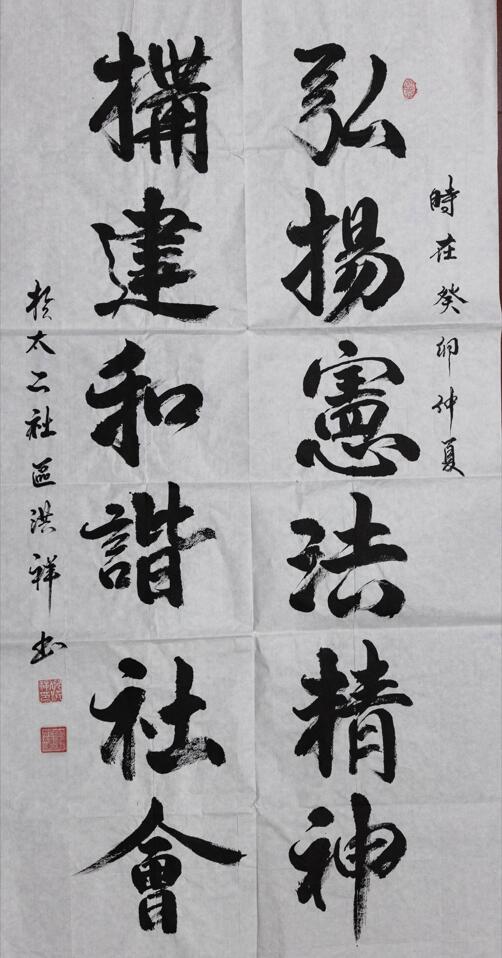 時在癸卯仲夏
弘揚憲法精神
構建和諧社會
於太二社區洪祥书